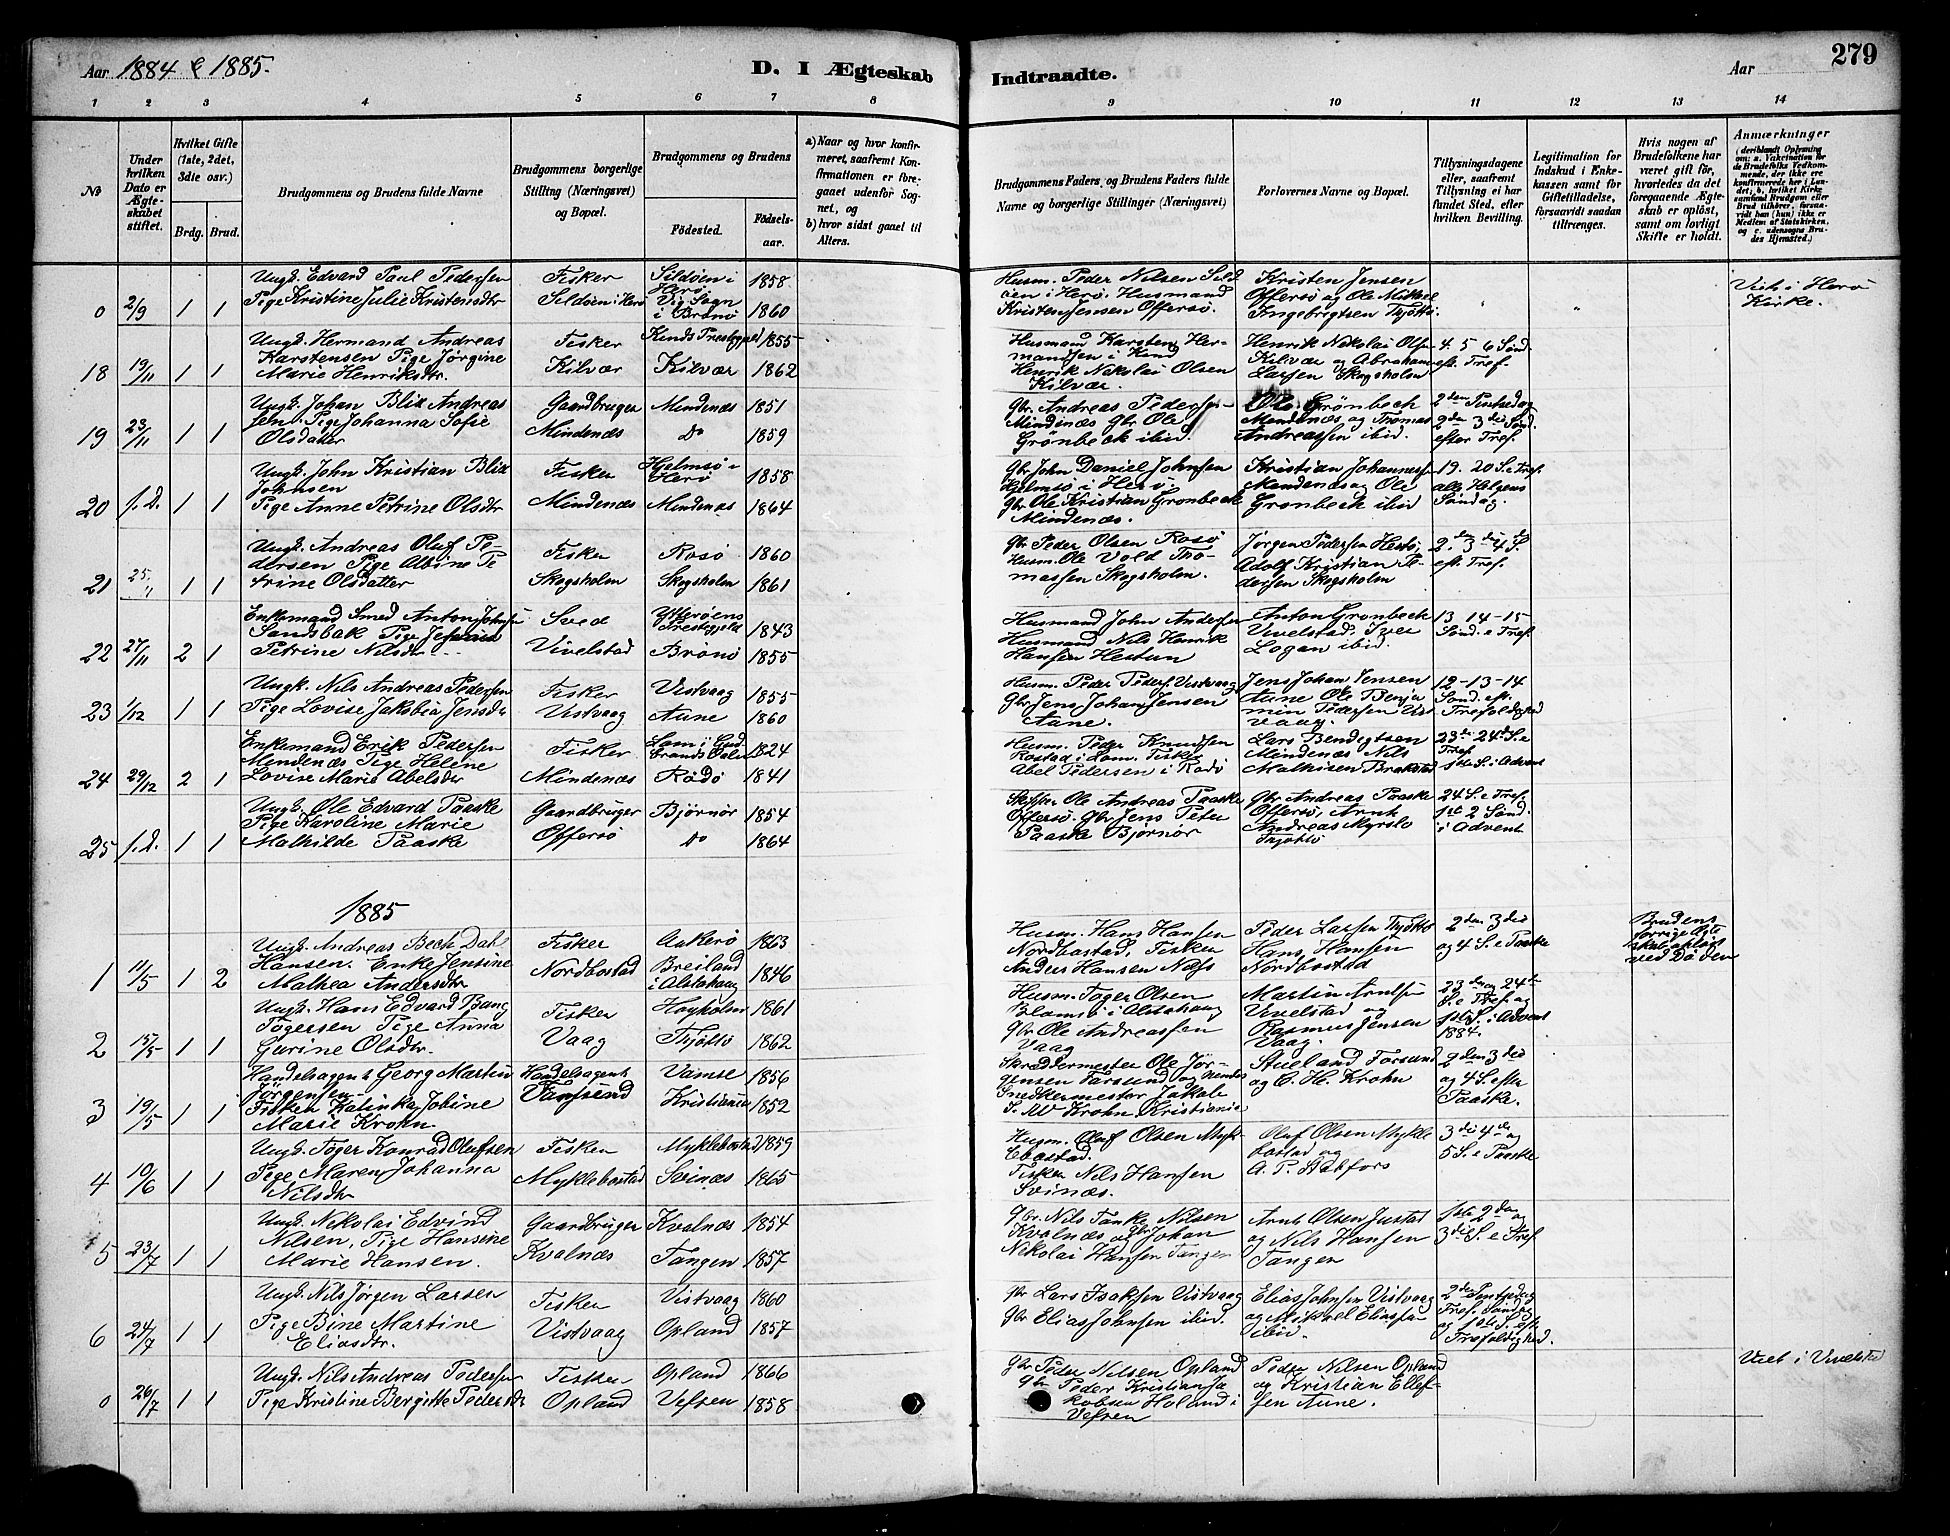 Aar 1884 & 1885.
D. I Ægteskab Indtraadte.
Aar
279
1 2 3 4 5 6 7 8 9 10 11 12 13 14
No
Under hvilken Dato er Ægteskabet stiftet.
Hvilket Gifte (1ste, 2det, 3die osv.)
Brdg. Brud.
Brudgommens og Brudens fulde Navne
Brudgommens borgerlige Stilling (Næringsvei) og Bopæl.
Brudgommens og Brudens
Fødested.
Fødselsaar.
a) Naar og hvor konfirmeret, saafremt Konfirmationen er foregaaet udenfor Sognet, og
b) hvor sidst gaaet til Alters.
Brudgommens Faders og Brudens Faders fulde Navne og borgerlige Stillinger (Næringsvei)
Forlovernes Navne og Bopæl.
Tillysningsdagene eller, saafremt Tillysning ei har fundet Sted, efter hvilken Bevilling.
Legitimation for Indskud i Enkekassen samt for Giftetilladelse, forsaavidt saadan tiltrænges.
Hvis nogen af Brudefolkene har været gift før, hvorledes da det foregaaende Ægteskab er opløst, samt om lovligt Skifte er holdt.
Anmærkninger (deriblandt Oplysning om: a. Vakcination for de Brudefolks Vedkommende, der ikke ere konfirmerede her i Landet; b. hvilket Kirkesamfund Brudgom eller Brud tilhører, forsaavidt han (hun) ikke er Medlem af Statskirken, og c. udensogns Brudes Hjemsted.)
0 2/9 1 1
Ungk. Edvard Paul Pedersen
Pige Kristine Julie Kristensdtr
Fisker
Sildøen i Herø
Sildøen i Herø 1858
Vig Sogn i Brønø 1860
Husm. Peder Nilsen Sild
øen i Herø. Husmand
Kristen Jensen Offersø.
Kristen Jensen
Offersø og Ole Mikael
Ingebrigtsen Tjøttø.
Viet i Herø
Kirke.
18 19/11 1 1
Ungk. Hermand Andreas
Karstensen Pige Jørgine
Marie Henriksdtr.
Fisker
Kilvær
Kinds Prestegjeld 1855
Kilvær 1862
Husmand Karsten Her
mandsen i Kind
Henrik Nikolai Olsen
Kilvær.
Henrik Nikolai Olsen
Kilvær og Abraham
Larsen Skogsholm
4. 5 6 Sønd.
eft. Tref.
19 23/11 1 1
Ungk. Johan Blix Andreas
sen. Pige Johanna Sofie
Olsdatter
Gaardbruger
Mindenæs
Mindenæs 1851
Do 1859
Gbr Andreas Pedersen
Mindenæs Gbr Ole
Grønbeck ibid.
Ole Grønbeck
Mendenæs og Thomas
Andreassen ibid.
2den Pintsedag
2den 3die Sønd.
efter Tref.
20 s.D. 1 1
Ungk. John Kristian Blix
Johnsen
Pige Anne Petrine Olsdtr
Fisker
Mindenæs
Hjelmsø i Herø 1858
Mindenæs 1864
Gbr John Daniel Johnsen
Hjelmsø i Herø.
Gbr Ole Kristian Grønbeck
Mindenæs.
Kristian Johanness.
Mendenæs og Ole
Grønbeck ibid
19. 20 S. e Tref.
alle Helgens
Søndag.
21 25/" 1 1
Ungk. Andreas Oluf Pe-
dersen Pige Albine Pe
trine Olsdatter
Fisker
Skogsholm
Rosø 1860
Skogsholm 1861
Gbr Peder Olsen Rosø
Husm. Ole Vold Tho-
massen Skogsholm.
Jørgen Pedersen Hestø,
Adolf Kristian Pe-
dersen Skogsholm
2den 3die 4de S.
eft. Tref.
22 27/11 2 1
Enkemand Smed Anton Johnsen
Sandsbak Pige Jesine
Petrine Nilsdtr
Smed
Vivelstad
Ytterøens Prestegjeld 1843
Brønø 1855
Husmand John Andersen
Husmand Nils Henrik
Hansen Hestun
Anton Grønbeck
Vivelstad. Iver
Logan ibid.
13 14-15
Sønd. e Tref.
23 1/12 1 1
Ungk. Nils Andreas Pedersen
Pige Lovise Jakobia Jensdtr
Fisker
Vistvaag
Vistvaag 1855
Aune 1860
Husm. Peder Peders. Vistvaag
Gbr Jens Johan Jensen
Aune.
Jens Johan Jensen
Aune Ole Benja
min Pedersen Vist
vaag.
12-13-14
Sønd. eft.
Trefoldighed
24 29/12 2 1
Enkemand Erik Pedersen
Mendenæs Pige Helene
Lovise Marie Abelsdtr
Fisker
Mindenæs
Lom i Gudbrandsdalen 1824
Rødø 1841
Husm. Peder Knudsen
Rostad i Lom. Fisker
Abel Pedersen i Rødø
Lars Bendigtsen
Mindenæs Nils
Mathisen Brakstad
23de 24de S. e
Tref.
1ste S. i Advent
25 s.D. 1 1
Ungk. Ole Edvard Paaske
Pige Karoline Marie
Mathilde Paaske
Gaardbruger
Offersø
Bjørnør 1854
Do 1864
Skipper Ole Andreas Paaske
Offersø. Gbr Jens Peter
Paaske Bjørnør
Gbr Andreas Paaske
Offersø, Arnt
Andreas Myrslo
Tjøttø
24 S. e Tref.
1ste 2 Sønd.
i Advent
1885
1 11/5 1 2
Ungk. Andreas Bech Dahl
Hansen. Enke Jensine
Mathea Andersdtr
Fisker
Nordbostad
Aakerø 1863
Breiland i Alstahaug 1846
Husm. Hans Hansen
Nordbostad, Fisker
Anders Hansen Næss
Peder Larsen Tjøttø
Hans Hansen
Nordbostad
2den 3die
og 4 S. e Paaske
Brudens
forrige Ægte
skab opløst
ved Døden
2 15/5 1 1
Ungk. Hans Edvard Bang
Tøgersen Pige Anna
Gurine Olsdtr.
Fisker
Vaag
Høyholm 1861
Thjøttø 1862
Husm. Tøger Olsen
Blomsø i Alstahaug
Gbr Ole Andreassen
Vaag
Martin Arntsen
Vivelstad og
Rasmus Jensen
Vaag.
23de og 24de
S. e Tref og
1ste S. i Advent
1884.
3 19/5 1 1
Handelsagent Georg Martin
Jörgensen
Frøken Kalinka Jobine
Marie Krohn
Handelsagent
Farsund
Vamse 1856
Kristiania 1852
Skrædermester Ole Jør-
gensen Farsund og
Snedkermester Jakob
Krohn Kristiania
Farsund
og C. H. Krohn
2den 3die
og 4 S. efter
Paaske.
4 10/6 1 1
Ungk. Tøger Konrad Olufsen
Pige Maren Johanna
Nilsdtr
Fisker
Myklebostad
Myklebostad 1859
Svinæs 1865
Husm. Oluf Olsen Myk-
lebostad.
Fisker Nils Hansen
Svinæs.
Oluf Olsen Mykle
bostad og
A. P. Dybfors
3die 4de og
5 S. e Paaske
5 23/7 1 1
Ungk. Nikolai Edvind
Nilsen, Pige Hansine
Marie Hansen.
Gaardbruger
Kvalnæs
Kvalnæs 1854
Tangen 1857
Gbr. Nils Tanke Nilsen
Kvalnæs og Gbr Johan
Nikolai Hansen Tangen
Arnt Olsen Justad
og Nils Hansen
Tangen
1ste 2den og
3die S. e Tref.
6 24/7 1 1
Ungk. Nils Jørgen Larsen
Pige Bine Martine
Eliasdtr.
Fisker
Vistvaag
Vistvaag 1860
Opland 1857
Gbr Lars Isaksen Vistvaag
Gbr Elias Johnsen ibid.
Elias Johnsen Vistvaag
og Mikael Eliassen
ibid.
2den Pintsedag
Tref. Søndag
og 1ste S. eft.
Trefoldighed.
0 26/7 1 1
Ungk. Nils Andreas Pedersen
Pige Kristine Bergitte Pedersdtr
Fisker
Opland
Opland 1866
Vefsen 1858
Gbr Peder Nilsen Opland
Gbr Peder Kristian Ja
kobsen Holand i
Vefsen
Peder Nilsen Opland
og Kristian Ellef-
sen Aune.
Viet i Vivelstad